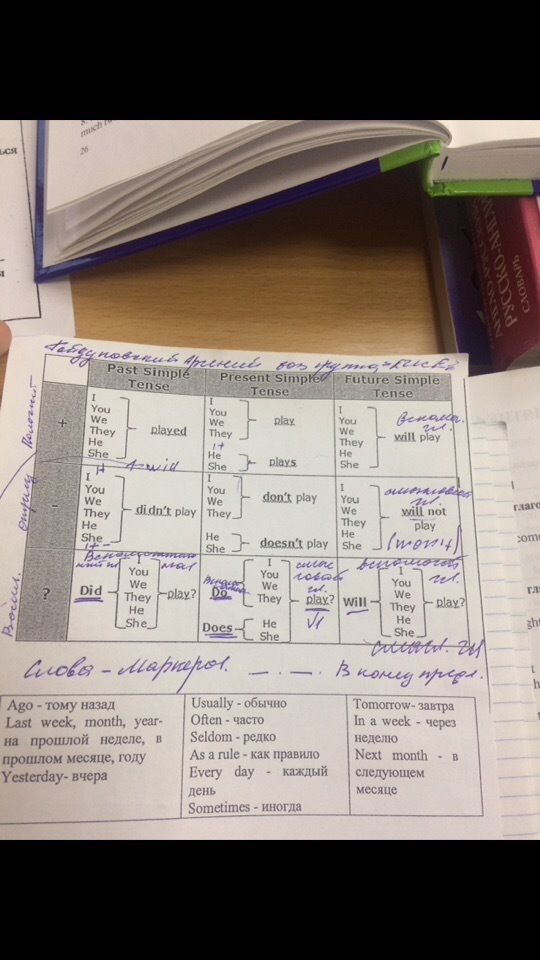 much
26
АНГЛО-РУССКИЙ
РУССКО-АНГЛИЙСКИЙ
СЛОВАРЬ
Арсений группа
Past Simple Tense
Present Simple Tense
Future Simple Tense
+
I
You
We
They
He
She
played
I
You
We
They
play
it
He
She
plays
I
You
We
They
He
She
will play
Вспомог. гл.
-
I
You
We
They
He
She
didn't play
it
I
You
We
They
don't play
He
She
doesn't play
I
You
We
They
He
She
will not
play
(won't)
?
Did
I
You
We
They
He
She
play?
Do
I
You
We
They
play?
Does
He
She
Will
I
You
We
They
He
She
play?
смысл. гл
Слова - Маркеры. В конец предл.
Ago - тому назад
Last week, month, year-
на прошлой неделе, в
прошлом месяце, году
Yesterday- вчера
Usually - обычно
Often - часто
Seldom - редко
As a rule - как правило
Every day - каждый
день
Sometimes - иногда
Tomorrow- завтра
In a week - через
неделю
Next month - в
следующем
месяце